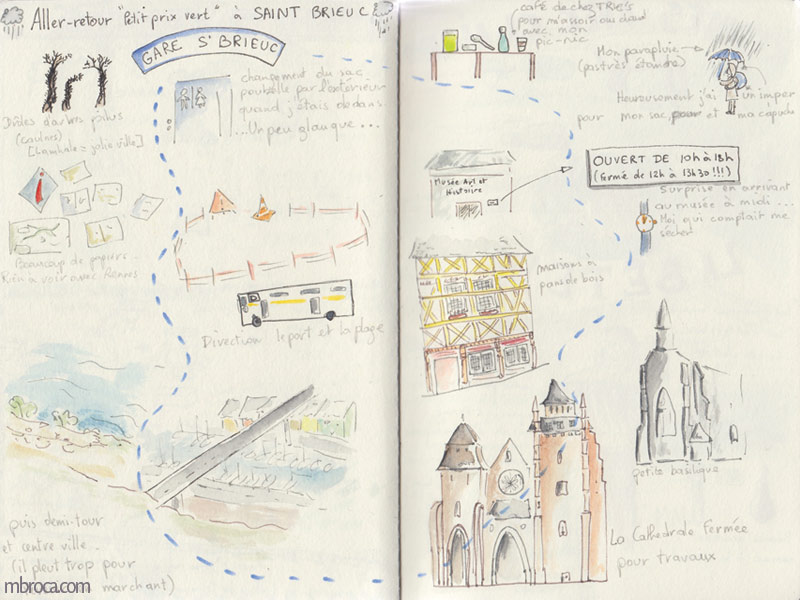 Aller-retour "Petit prix vert" à SAINT BRIEUC
GARE St BRIEUC
changement du sac
poubelle par l'extérieur
quand j'étais dedans
...Un peu glauque...
Drôles d'arbres
(caulnes)
[Lamballe = jolie ville]
Beaucoup de papiers...
Rien à voir avec Rennes
Direction le port et la plage
puis demi-tour
et centre ville...
(il pleut trop pour
marchant)
mbroca.com
café de chez
pour m'assoir au chaud
avec mon
pic-nic
Mon parapluie
(pas très étanche)
Heureusement j'ai un imper
pour mon sac, pour et ma capuche
Musée Art et
Histoire
OUVERT DE 10h à 18h
(fermé de 12h à 13h30 !!!)
Surprise en arrivant
au musée à midi...
Moi qui comptait me
sécher
maisons à
pans de bois
petite basilique
La Cathédrale Fermée
pour travaux